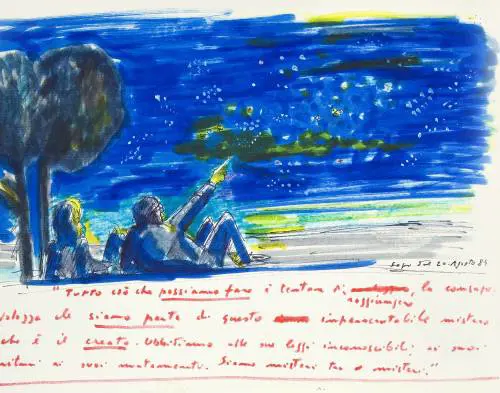 Sogno del 20 Agosto 84
"Tutto ciò che possiamo fare è tentare di raggiungere la consape
volezza di siamo parte di questo impenscrutabile mistero
che è il creato. Ubbidiamo alle sue leggi inconoscibili, ai suoi
ai suoi mutamenti. Siamo misteri tra misteri."